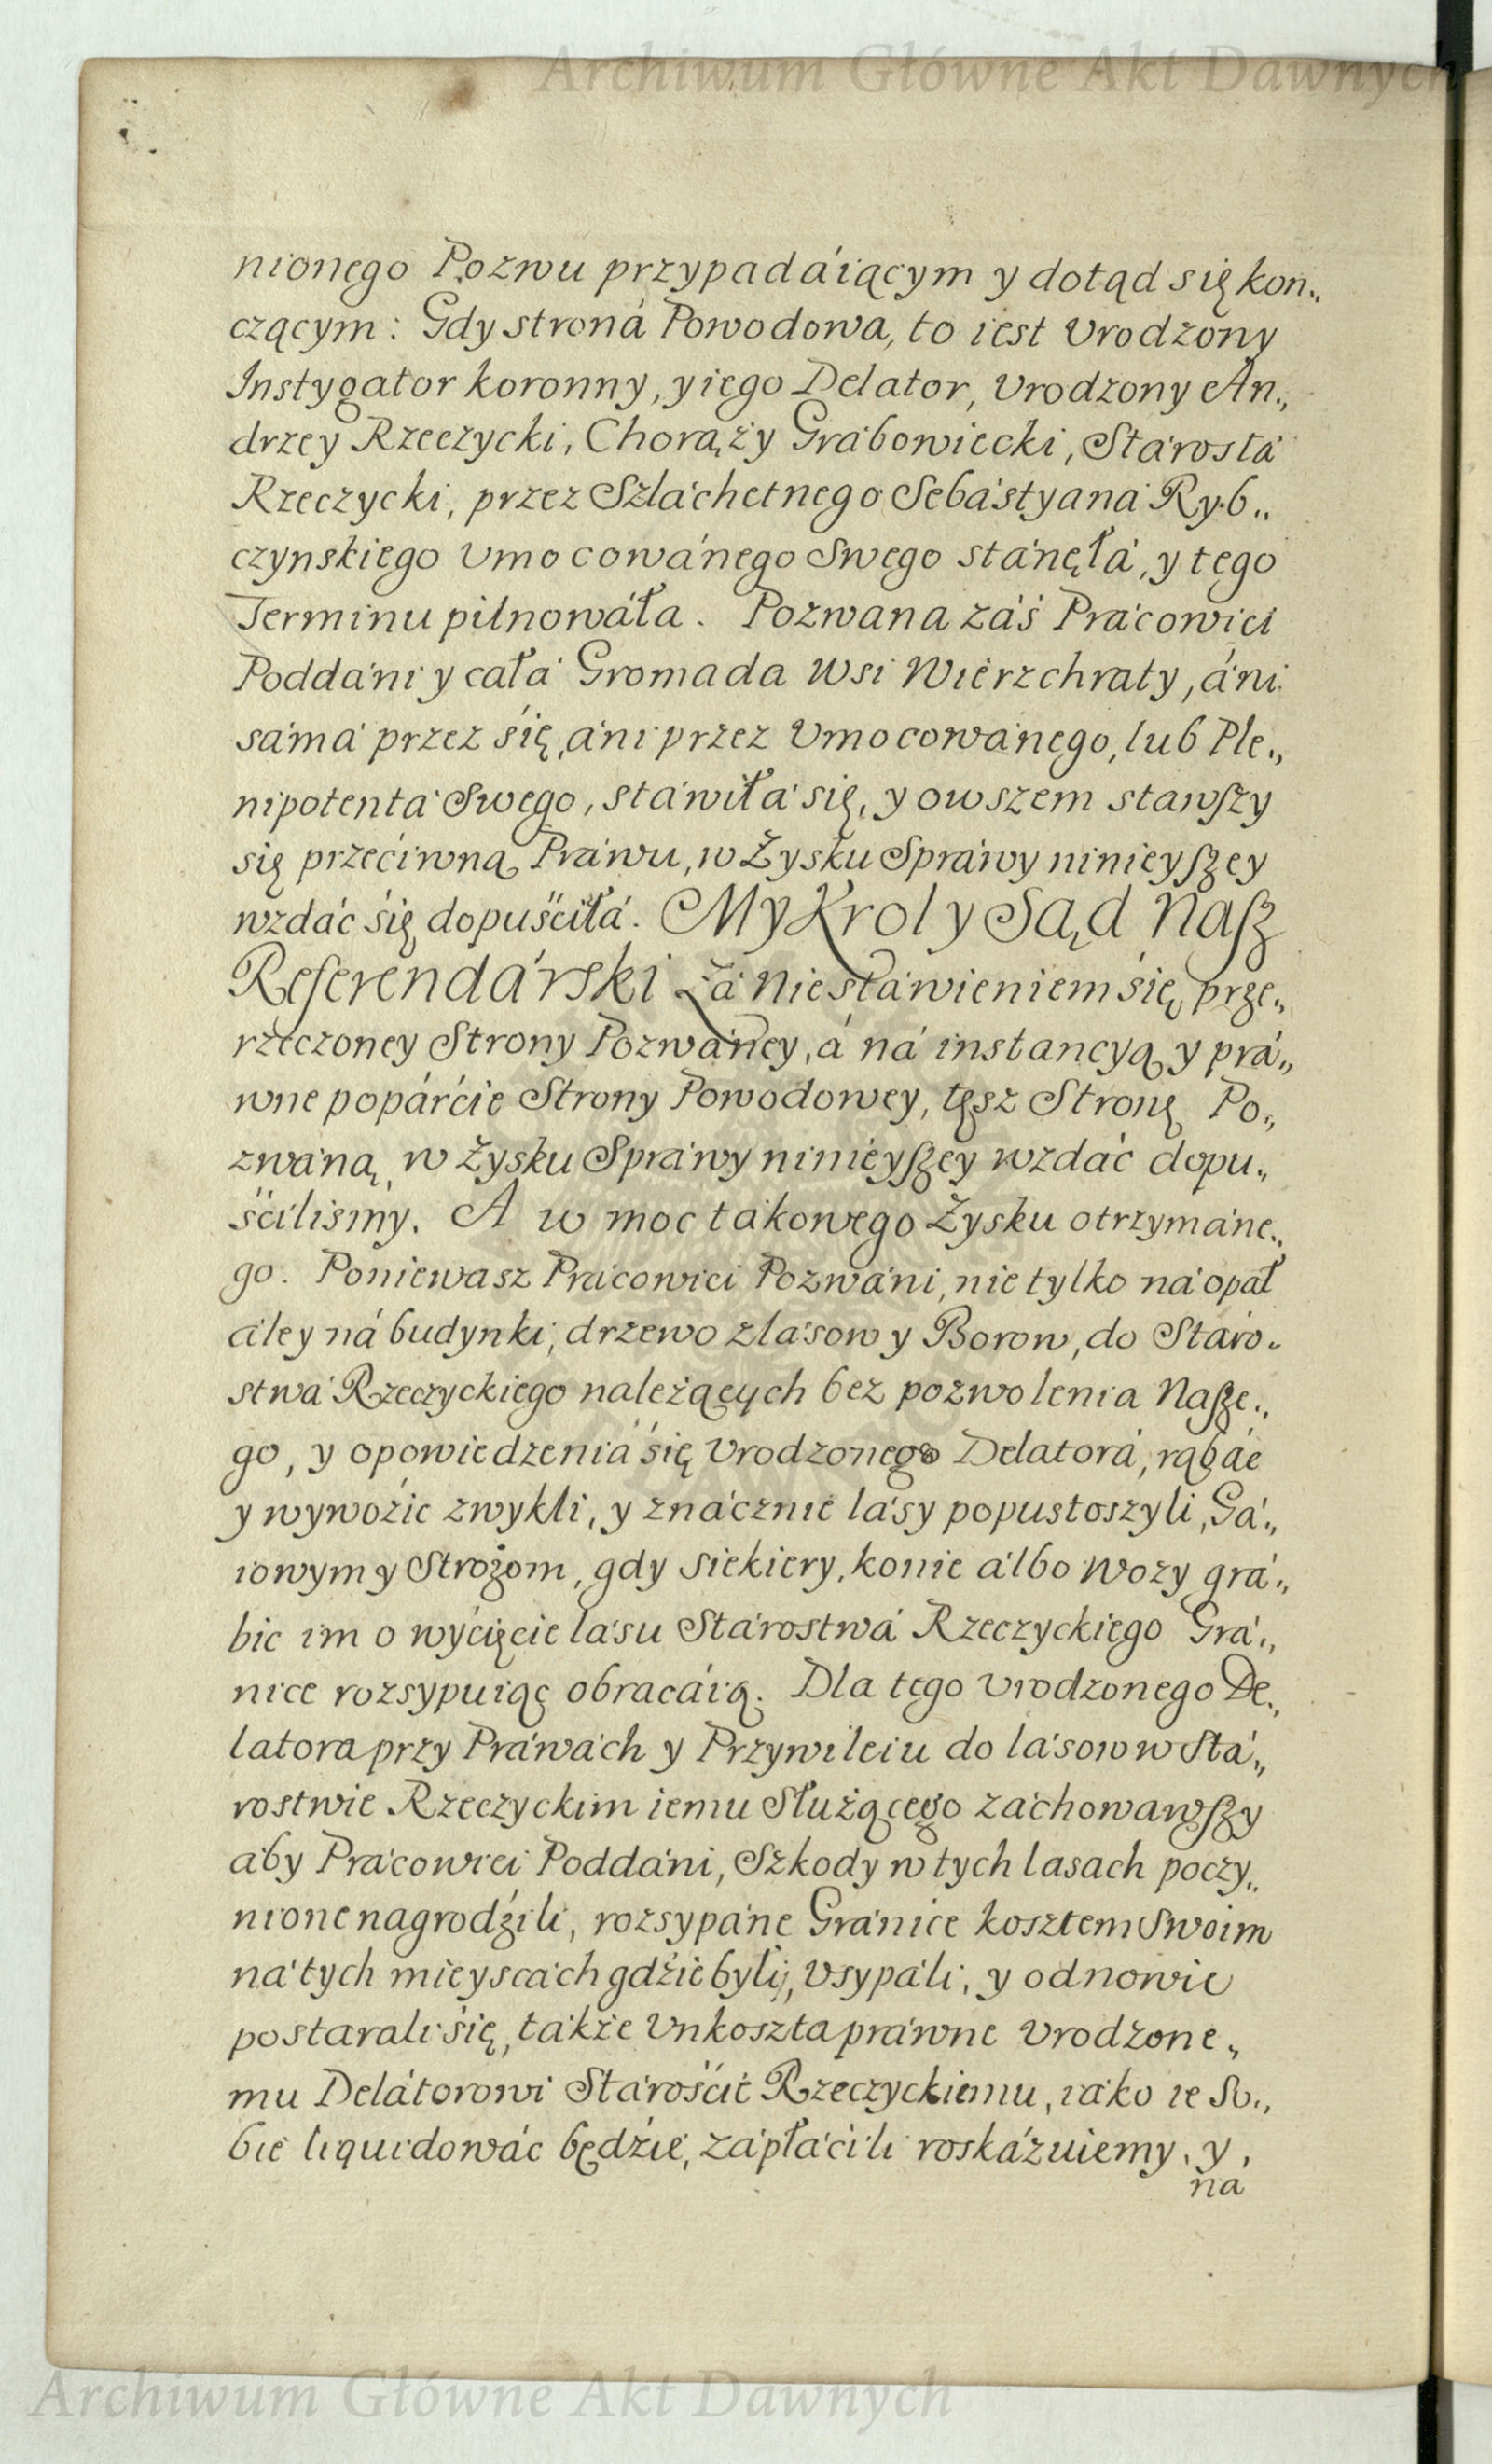 Archiwum Główne Akt Dawnych
nionego Pozwu przypadáiącym y dotąd się kon„
czącym: Gdy stroná Powodowa, to iest Vrodzony
Instygator koronny, y iego Delator, Vrodzony An„
drzey Rzeczycki, Chorąży Grábowiecki, Stárostá
Rzeczycki, przez Szláchetnego Sebástyaná Ryb„
czynskiego Vmocowánego Swego stánęłá, y tego
Terminu pilnowáła. Pozwana záś Prácowici
Poddáni y całá Gromada Wsi Wierzchraty, áni
sámá przez się, áni przez Vmocowánego, lub Ple„
nipotentá Swego, stáwiłá się, y owszem stawszy
się przećiwną Práwu, w Zysku Spráwy ninieyszey
wzdáć się dopuśćiłá. My Krol y Sąd Nasz
Referendárski zá niestáwieniem się prze„
rzeczoney Strony Pozwáney, á ná instancyą y prá„
wne popárćie Strony Powodowey, tęsz Stronę Po„
zwáną, w Zysku Spráwy ninieyszey wzdáć dopu„
śćilismy. A w moc tákowego Zysku otrzymáne„
go. Poniewasz Prácowici Pozwáni, nie tylko ná opał
áley ná budynki, drzewo z lásow y Borow, do Stáro„
stwá Rzeczyckiego należących bez pozwolenia Nasze„
go, y opowiedzeniá się Vrodzonego Delatorá, rąbáć
y wywoźic zwykli, y znácznie lásy popustoszyli, Gá„
iowym y Strożom, gdy siekiery, konie álbo wozy grá„
bic im o wyćięcie lásu Stárostwá Rzeczyckiego Grá„
nice rozsypuiąc obracáią. Dla tego Vrodzonego De„
latora przy Práwách y Przywileiu do lásow w Stá„
rostwie Rzeczyckim iemu Służącego záchowawszy
áby Prácowici Poddáni, Szkody w tych lasach poczy„
nione nagrodźili, rozsypáne Gránice kosztem Swoim
ná tych mieyscách gdźie były, Vsypáli, y odnowic
postarali się, tákże Vnkoszta práwne Vrodzone„
mu Delátorowi Stárośćie Rzeczyckiemu, iáko ie So„
bie liquidowác będźie, zápłáćili roskázuiemy, y,
na
Archiwum Główne Akt Dawnych